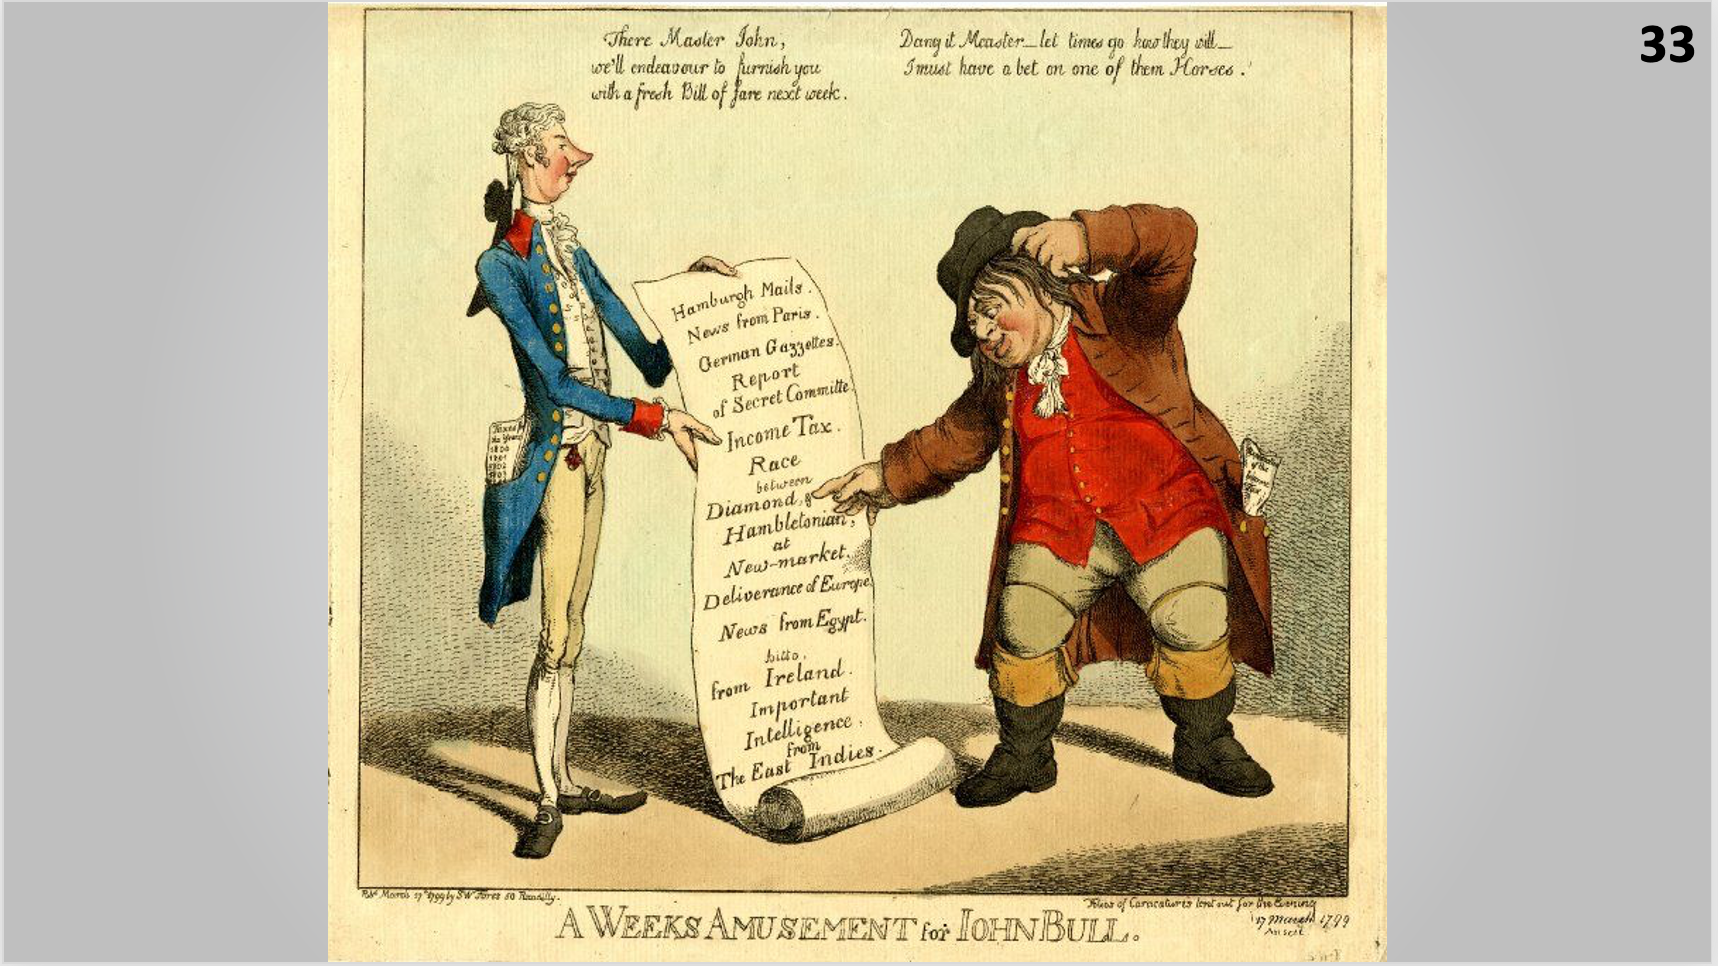 33
There Master John,
we'll endeavour to furnish you
with a fresh Bill of fare next week.
Dang it Measter_let times go how they will_
I must have a bet on one of them Horses.
Hamburgh Mails.
News from Paris.
German Gazzettes.
Report
of Secret Committe
Income Tax.
Race
between
Diamond, &
Hambletonian,
at
New-market.
Deliverance of Europe.
News from Egypt.
ditto.
from Ireland.
Important
Intelligence.
from
The East Indies.
the Years
1800
1801
1802
of the
Pubd March 17th 1799 by SW Fores 50 Piccadilly.
Folios of Caracatures lent out for the Evening
17 March 1799
Ansell
A WEEKS AMUSEMENT for IOHN BULL.